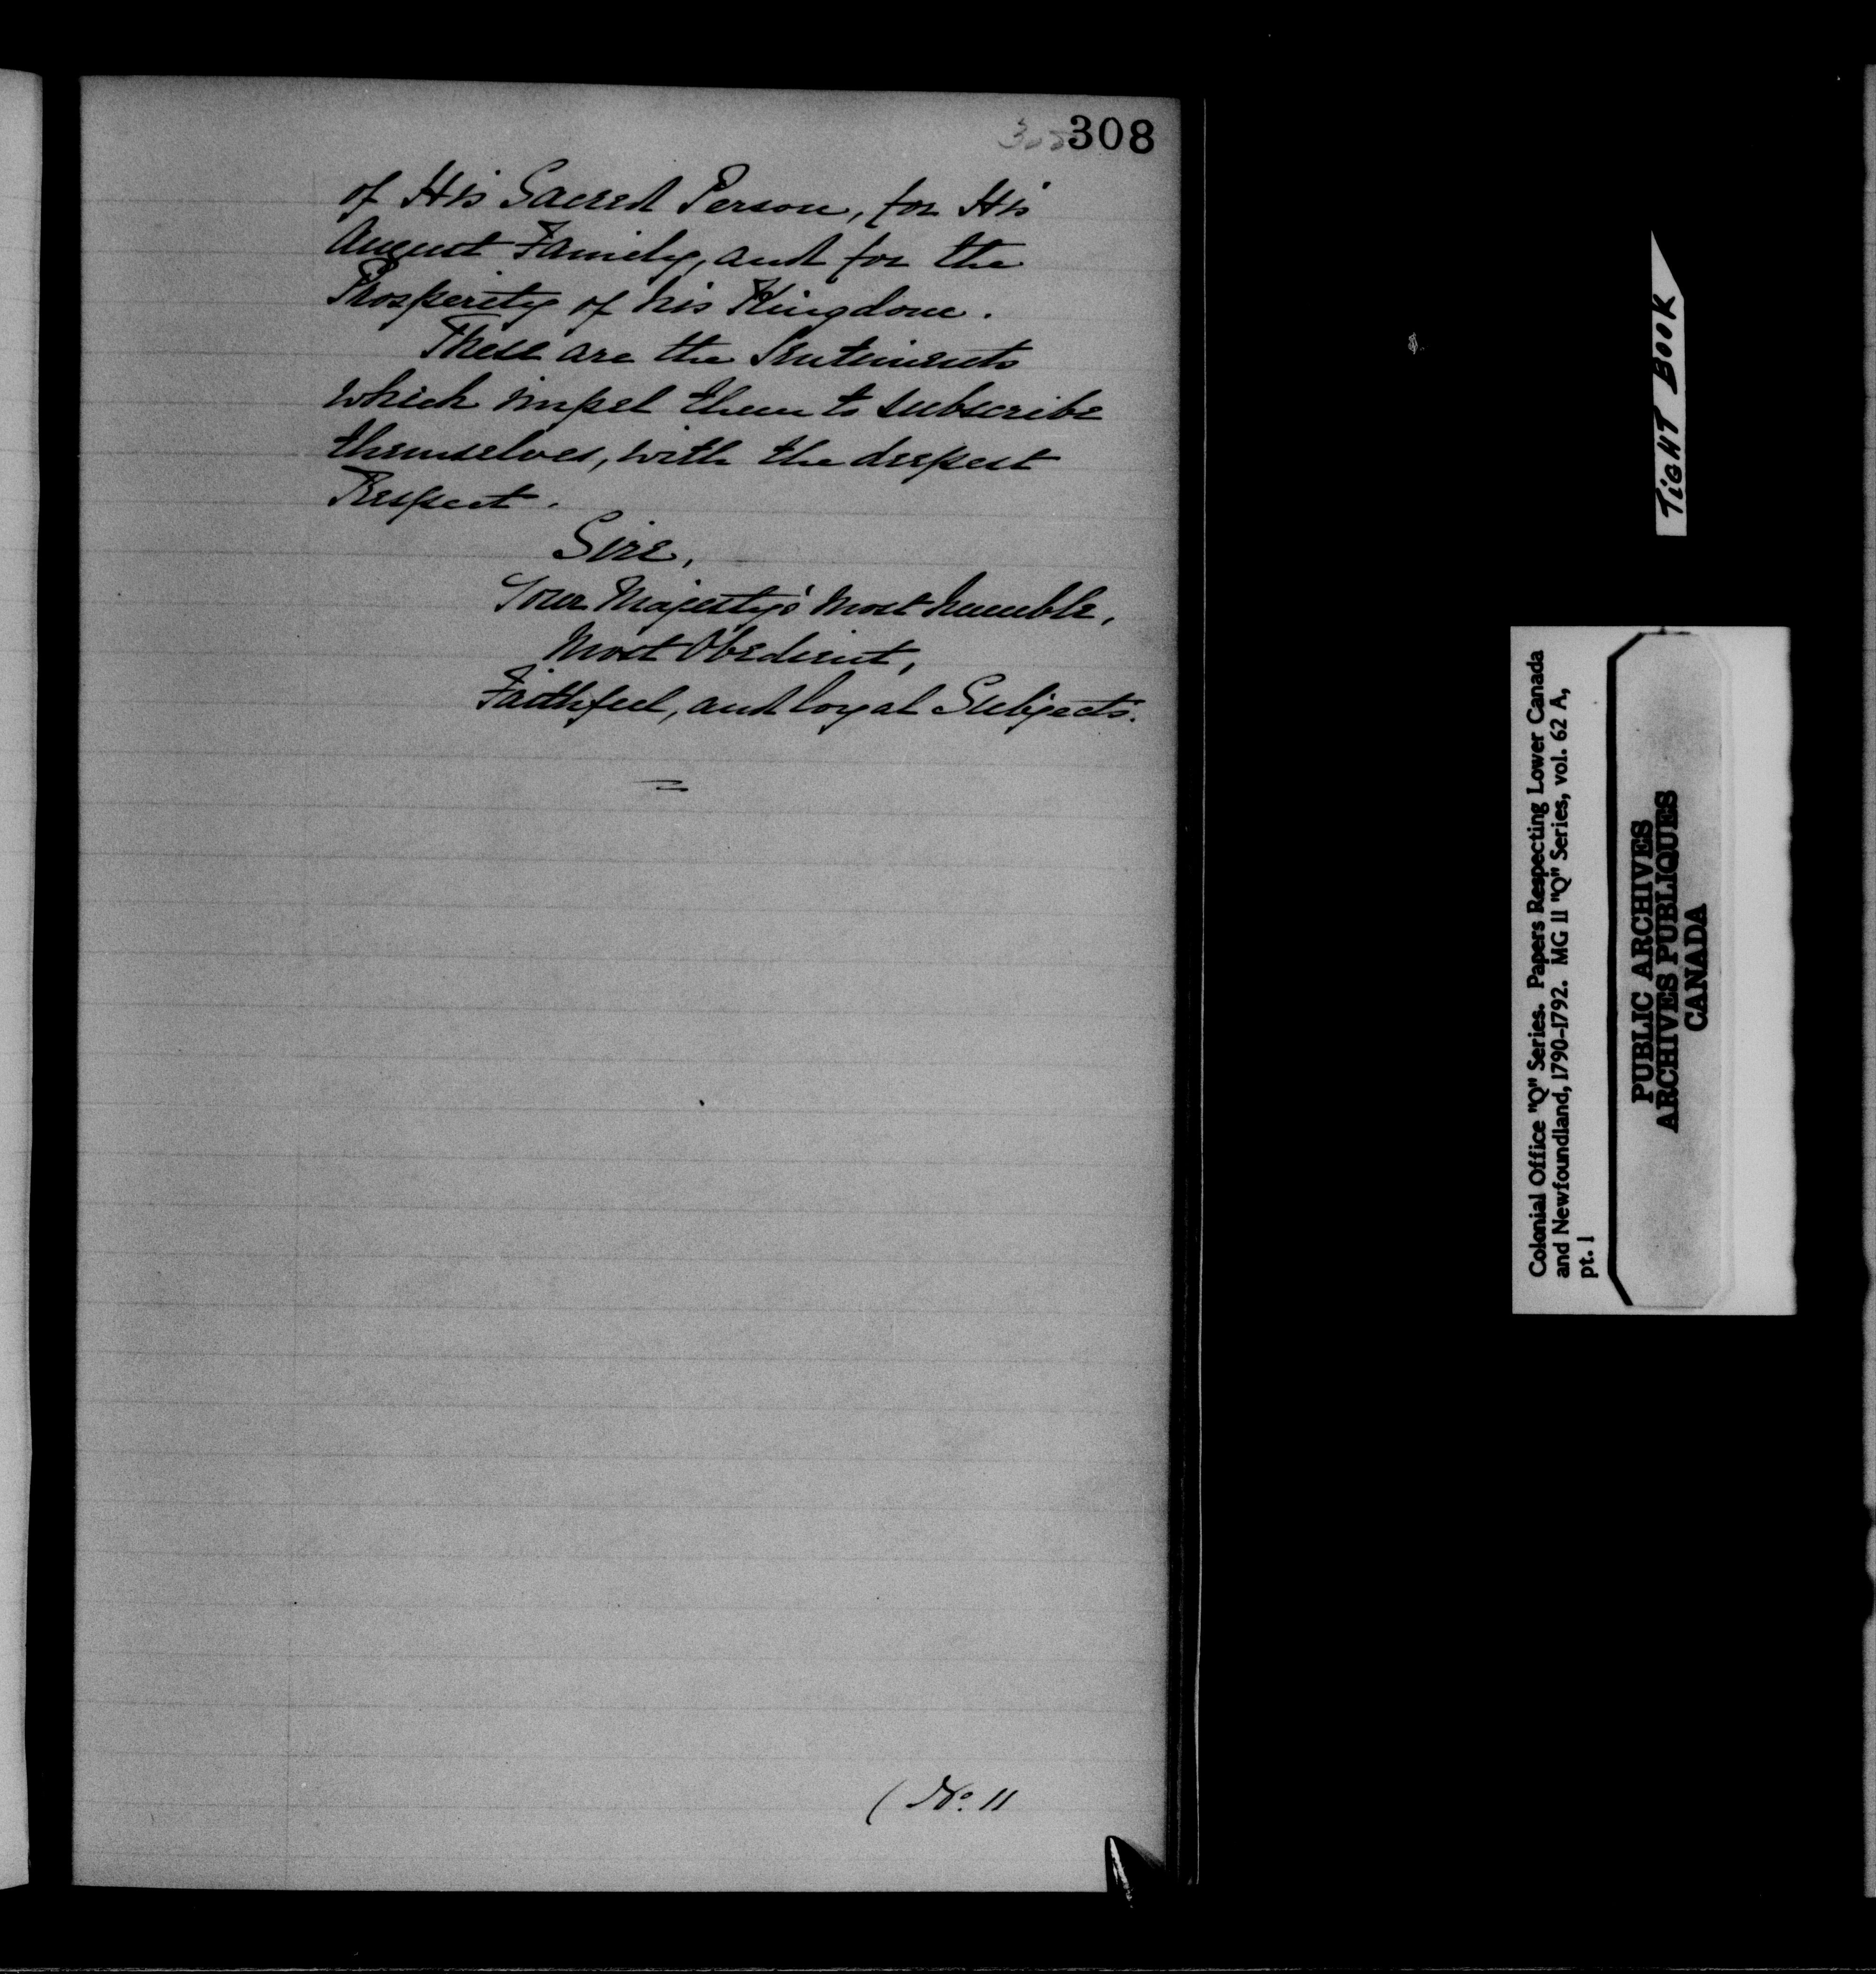 308
of His Sacred Person, for His
August Family, and for the
Prosperity of his Kingdom.
These are the Sentiments
which impel them to subscribe
themselves, with the deepest
Respect.
Sire,
Your Majesty's most humble,
Most Obedient,
Faithful, and loyal Subjects.
( No. 11
TiGHT BOOK
Colonial Office "Q" Series. Papers Respecting Lower Canada
and Newfoundland, 1790-1792. MG 11 "Q" Series, vol. 62 A,
pt. 1
PUBLIC ARCHIVES
ARCHIVES PUBLIQUES
CANADA